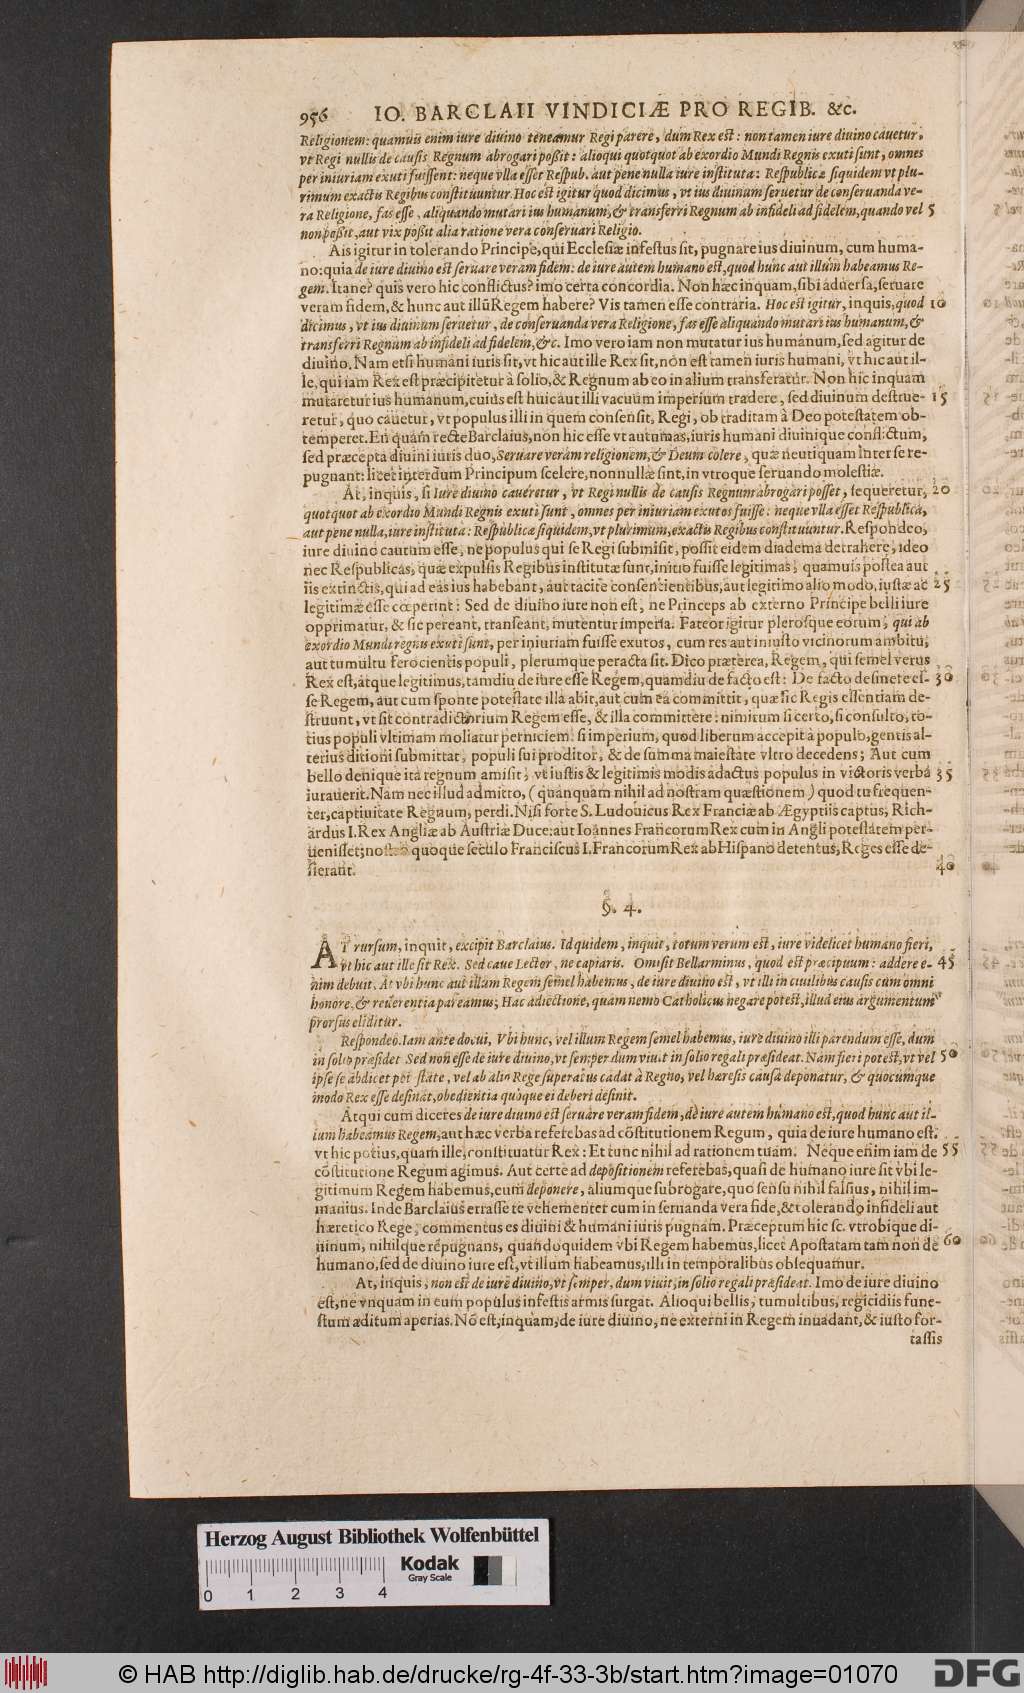 956 IO. BARCLAII VINDICIÆ PRO REGIB. &c.
Religionem: quamuis enim iure diuino teneamur Regi parere, dum Rex est: non tamen iure diuino cauetur,
vt Regi nullis de causis Regnum abrogari poßit: alioqui quotquot ab exordio Mundi Regnis exuti sunt, omnes
per iniuriam exuti fuissent: neque vlla esset Respub. aut pene nulla iure instituta: Respublicæ siquidem vt plu-
rimum exactis Regibus constituuntur. Hoc est igitur quod dicimus, vt ius diuinum seruetur de conseruanda ve-
ra Religione, fas esse, aliquando mutari ius humanum, & transferri Regnum ab infideli ad fidelem, quando vel 5
non poßit, aut vix poßit alia ratione vera conseruari Religio.
Ais igitur in tolerando Principe, qui Ecclesiæ infestus sit, pugnare ius diuinum, cum huma-
no: quia de iure diuino est seruare veram fidem: de iure autem humano est, quod hunc aut illum habeamus Re-
gem. Itane? quis vero hic conflictus? imo certa concordia. Non hæc inquam, sibi aduersa, seruare
veram fidem, & hunc aut illū Regem habere? Vis tamen esse contraria. Hoc est igitur, inquis, quod 10
dicimus, vt ius diuinum seruetur, de conseruanda vera Religione, fas esse aliquando mutari ius humanum, &
transferri Regnum ab infideli ad fidelem, &c. Imo vero iam non mutatur ius humanum, sed agitur de
diuino. Nam etsi humani iuris sit, vt hic aut ille Rex sit, non est tamen iuris humani, vt hic aut il-
le, qui iam Rex est præcipitetur à solio, & Regnum ab eo in alium transferatur. Non hic inquam
mutaretur ius humanum, cuius est huic aut illi vacuum imperium tradere, sed diuinum destrue- 15
retur, quo cauetur, vt populus illi in quem consensit, Regi, ob traditam à Deo potestatem ob-
temperet. En quàm recte Barclaius, non hic esse vt autumas, iuris humani diuinique conflictum,
sed præcepta diuini iuris duo, Seruare veram religionem, & Deum colere, quæ neutiquam inter se re-
pugnant: licet interdum Principum scelere, nonnullæ sint, in vtroque seruando molestiæ.
At, inquis, si Iure diuino caueretur, vt Regi nullis de causis Regnum abrogari posset, sequeretur, 20
quotquot ab exordio Mundi Regnis exuti sunt, omnes per iniuriam exutos fuisse: neque vlla esset Respublica,
aut pene nulla, iure instituta: Respublicæ siquidem, vt plurimum, exactis Regibus constituuntur. Respondeo,
iure diuino cautum esse, ne populus qui se Regi submisit, possit eidem diadema detrahere, ideo
nec Respublicas, quæ expulsis Regibus institutæ sunt, initio fuisse legitimas; quamuis postea aut
iis extinctis, qui ad eas ius habebant, aut tacite consentientibus, aut legitimo alio modo, iustæ ac 25
legitimæ esse cœperint: Sed de diuino iure non est, ne Princeps ab externo Principe belli iure
opprimatur, & sic pereant, transeant, mutentur imperia. Fateor igitur plerosque eorum, qui ab
exordio Mundi regnis exuti sunt, per iniuriam fuisse exutos, cum res aut iniusto vicinorum ambitu,
aut tumultu ferocientis populi, plerumque peracta sit. Dico præterea, Regem, qui semel verus
Rex est, atque legitimus, tamdiu de iure esse Regem, quamdiu de facto est: De facto desinete es- 30
se Regem, aut cum sponte potestate illa abit, aut cum ea committit, quæ sic Regis essentiam de-
struunt, vt sit contradictorium Regem esse, & illa committere: nimirum si certo, si consulto, to-
tius populi vltimam moliatur perniciem: si imperium, quod liberum accepit à populo, gentis al-
terius ditioni submittat, populi sui proditor, & de summa maiestate vltro decedens; Aut cum
bello denique ita regnum amisit, vt iustis & legitimis modis adactus populus in victoris verba 35
iurauerit. Nam nec illud admitto, (quanquam nihil ad nostram quæstionem) quod tu frequen-
ter, captiuitate Regnum, perdi. Nisi forte S. Ludouicus Rex Franciæ ab Ægyptiis captus, Rich-
ardus I. Rex Angliæ ab Austriæ Duce: aut Ioannes Francorum Rex cum in Angli potestatem per-
uenisset; nostro quoque seculo Franciscus I. Francorum Rex ab Hispano detentus, Reges esse de-
sierant. 40
§. 4.
AT rursum, inquit, excipit Barclaius. Id quidem, inquit, totum verum est, iure videlicet humano fieri,
vt hic aut ille sit Rex. Sed caue Lector, ne capiaris. Omisit Bellarminus, quod est præcipuum: addere e- 45
nim debuit. At vbi hunc aut illum Regem semel habemus, de iure diuino est, vt illi in ciuilibus causis cum omni
honore, & reuerentia pareamus; Hac adiectione, quam nemo Catholicus negare potest, illud eius argumentum
prorsus eliditur.
Respondeo. Iam ante docui, Vbi hunc, vel illum Regem semel habemus, iure diuino illi parendum esse, dum
in solio præsidet Sed non esse de iure diuino, vt semper dum viuit in solio regali præsideat. Nam fieri potest, vt vel 50
ipse se abdicet pot state, vel ab alio Rege superatus cadat à Regno, vel hæresis causa deponatur, & quocumque
modo Rex esse desinat, obedientia quoque ei deberi desinit.
Atqui cum diceres de iure diuino est seruare veram fidem, de iure autem humano est, quod hunc aut il-
lum habeamus Regem, aut hæc verba referebas ad cōstitutionem Regum, quia de iure humano est,
vt hic potius, quam ille, constituatur Rex: Et tunc nihil ad rationem tuam. Neque enim iam de 55
cōstitutione Regum agimus. Aut certe ad depositionem referebas, quasi de humano iure sit vbi le-
gitimum Regem habemus, eum deponere, aliumque subrogare, quo sensu nihil falsius, nihil im-
manius. Inde Barclaius errasse te vehementer cum in seruanda vera fide, & tolerando infideli aut
hæretico Rege, commentus es diuini & humani iuris pugnam. Præceptum hic sc. vtrobique di-
uinum, nihilque repugnans, quandoquidem vbi Regem habemus, licet Apostatam tam non de 60
humano, sed de diuino iure est, vt illum habeamus, illi in temporalibus obsequamur.
At, inquis, non est de iure diuino, vt semper, dum viuit, in solio regali præsideat. Imo de iure diuino
est, ne vnquam in eum populus infestis armis surgat. Alioqui bellis, tumultibus, regicidiis fune-
stum aditum aperias. Nō est, inquam, de iure diuino, ne externi in Regem inuadant, & iusto for-
tassis
Herzog August Bibliothek Wolfenbüttel
0 1 2 3 4
Kodak
Gray Scale
© HAB http://diglib.hab.de/drucke/rg-4f-33-3b/start.htm?image=01070
DFG